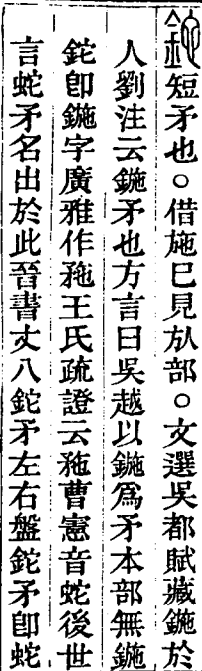 鉈短矛也○借施巳見㫃部○文選吳都賦藏鍦於
人劉注云鍦矛也方言曰吳越以鍦爲矛本部無鍦
鉈卽鍦字廣雅作𥍸王氏疏證云𥍸曹憲音蛇後世
言蛇矛名出於此晉書丈八鉈矛左右盤鉈矛卽蛇